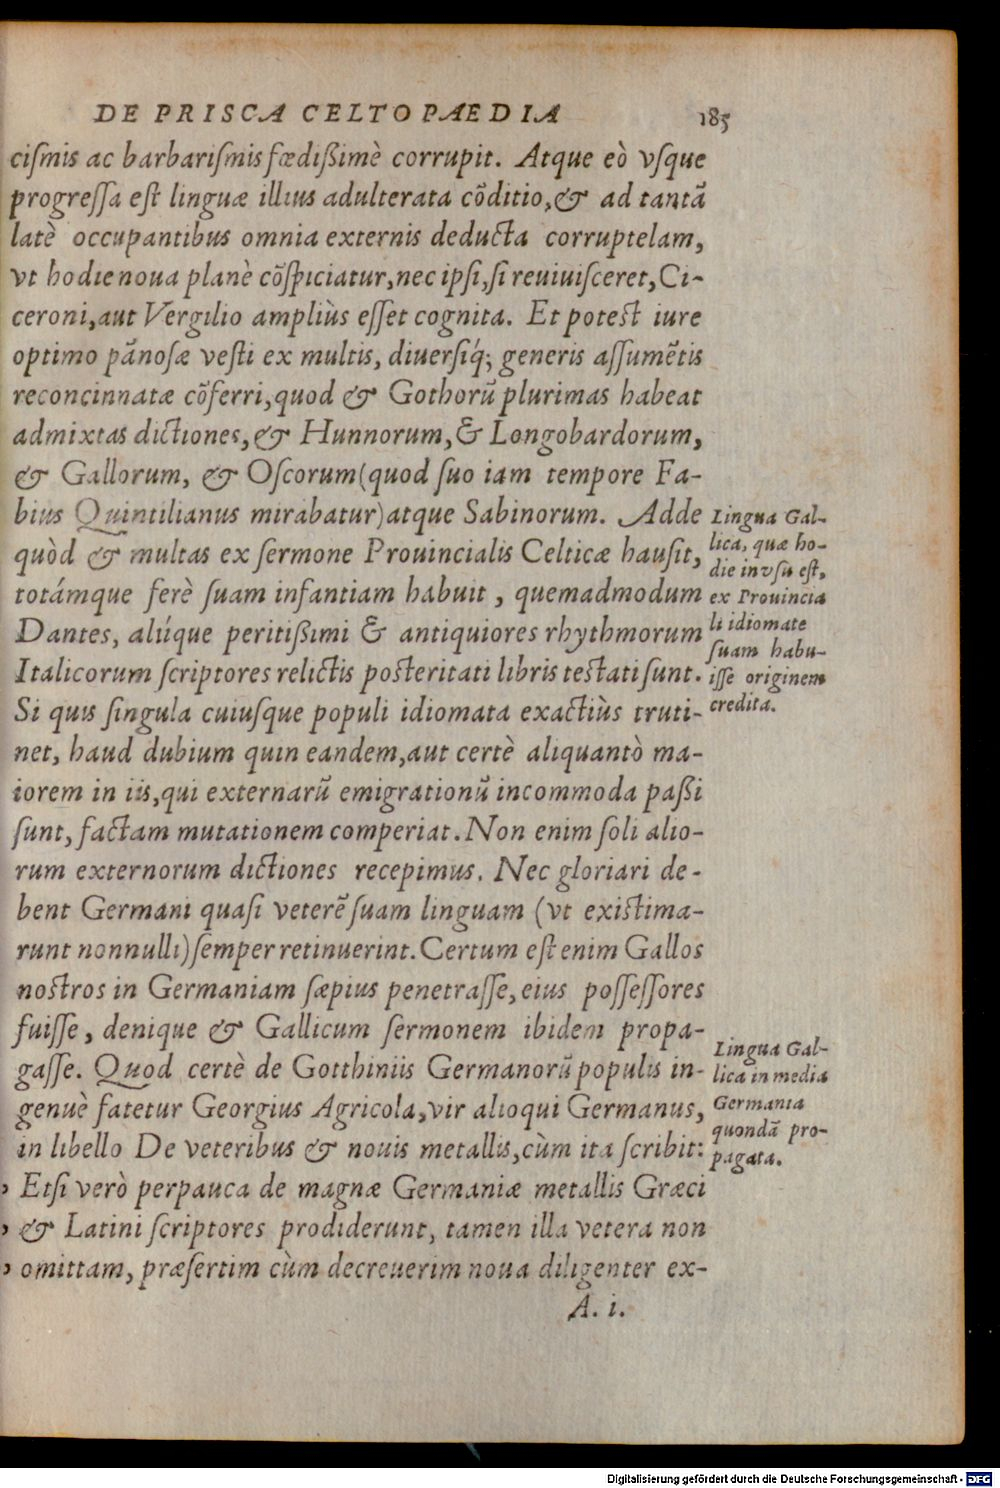 DE PRISCA CELTOPAEDIA 185
ciſmis ac barbariſmis fœdißimè corrupit. Atque eò vſque
progreſſa eſt linguæ illius adulterata cõditio, & ad tantã
latè occupantibus omnia externis deducta corruptelam,
vt hodie noua planè cõſpiciatur, nec ipſi, ſi reuiuiſceret, Ci-
ceroni, aut Vergilio ampliùs eſſet cognita. Et poteſt iure
optimo pãnoſæ veſti ex multis, diuerſiq́; generis aſſumẽtis
reconcinnatæ cõferri, quod & Gothorũ plurimas habeat
admixtas dictiones, & Hunnorum, & Longobardorum,
& Gallorum, & Oſcorum (quod ſuo iam tempore Fa-
bius Quintilianus mirabatur) atque Sabinorum. Adde
quòd & multas ex ſermone Prouincialis Celticæ hauſit,
totámque ferè ſuam infantiam habuit, quemadmodum
Dantes, alíique peritißimi & antiquiores rhythmorum
Italicorum ſcriptores relictis poſteritati libris teſtati ſunt.
Si quis ſingula cuiuſque populi idiomata exactiùs truti-
net, haud dubium quin eandem, aut certè aliquantò ma-
iorem in iis, qui externarũ emigrationũ incommoda paßi
ſunt, factam mutationem comperiat. Non enim ſoli alio-
rum externorum dictiones recepimus. Nec gloriari de-
bent Germani quaſi veterẽ ſuam linguam (vt exiſtima-
runt nonnulli) ſemper retinuerint. Certum eſt enim Gallos
noſtros in Germaniam ſæpius penetraſſe, eius poſſeſſores
fuiſſe, denique & Gallicum ſermonem ibidem propa-
gaſſe. Quod certè de Gotthiniis Germanorũ populis in-
genuè fatetur Georgius Agricola, vir alioqui Germanus,
in libello De veteribus & nouis metallis, cùm ita ſcribit:
, Etſi verò perpauca de magnæ Germaniæ metallis Græci
, & Latini ſcriptores prodiderunt, tamen illa vetera non
, omittam, præſertim cùm decreuerim noua diligenter ex-
A. i.
Lingua Gal-
lica, quæ ho-
die in vſu eſt,
ex Prouincia
li idiomate
ſuam habu-
iſſe originem
credita.
Lingua Gal-
lica in media
Germania
quondã pro-
pagata.
Digitalisierung gefördert durch die Deutsche Forschungsgemeinschaft - DFG